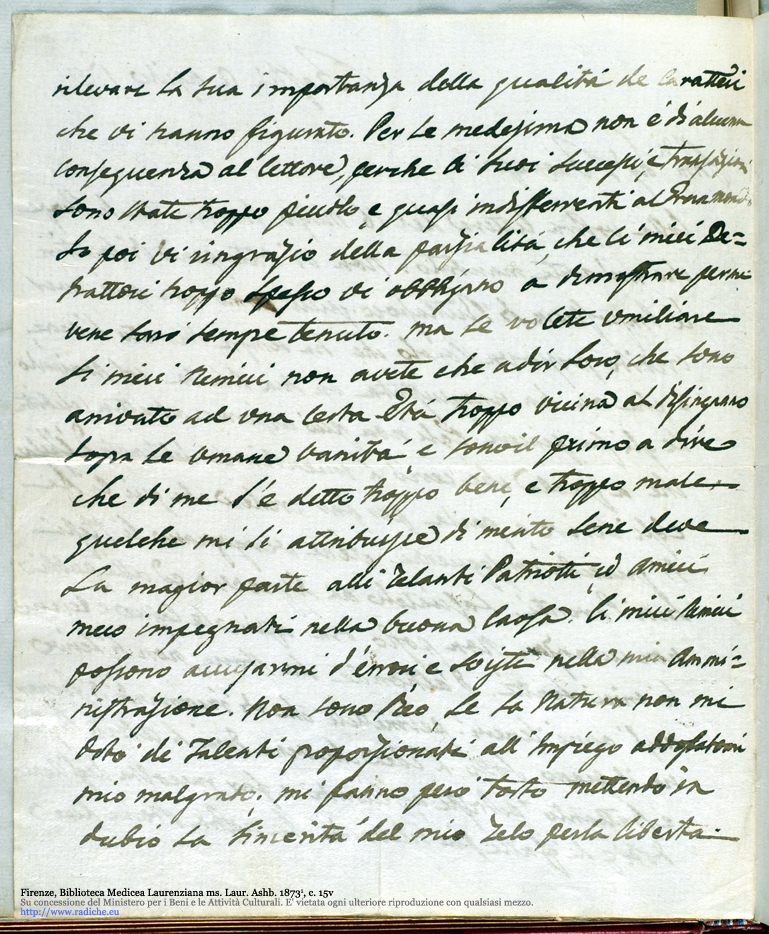 rilevare la sua importanza della qualitá de caratteri
che vi hanno figurato. Per se medesima non é di alcuna
conseguenza al lettore, perche li suoi successi, e transazioni
sono state troppo piccole, e quasi indifferenti al
Io poi vi ringrazio della parzialitá, che li miei De=
trattori troppo spesso vi obbligano a dimostrare per me
vene saró sempre tenuto. ma se volete umiliare
li miei Nemici non avete che a dir loro, che sono
arrivato ad una certa Etá troppo vicina al disinganno
sopra le umane vanitá, e sono il primo a dire
che di me s'é detto troppo bene, e troppo male.
quelche mi si attribuisce di merito sene deve
La magior parte alli Zelanti Patriotti, ed amici
meco impegnati nella buona causa. li miei Nemici
possono accusarmi d'errori e sviste nella mia Ammi=
nistrazione. Non sono Reo, se la Natura non mi
dotó de Talenti proporzionati all'Impiego addossatomi
mio malgrado; mi fanno peró torto mettendo in
dubio la sincerita del mio Zelo per la libertá.
Firenze, Biblioteca Medicea Laurenziana ms. Laur. Ashb. 1873¹, c. 15v
Su concessione del Ministero per i Beni e le Attività Culturali. E' vietata ogni ulteriore riproduzione con qualsiasi mezzo.
http://www.radiche.eu